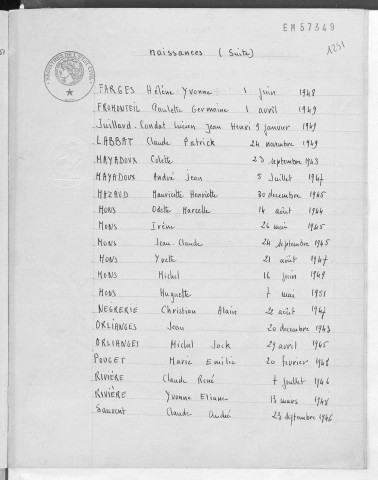 EM57349
1251
naissances (Suite)
FARGES Hélène Yvonne 1 juin 1948
FROMENTEIL Paulette Germaine 1 avril 1949
Juillard-Condat Lucien Jean Henri 9 janvier 1949
LABBAT Claude Patrick 24 novembre 1949
MAYADOUX Colette 23 septembre 1943
MAYADOUX André Jean 5 Juillet 1947
MAZAUD Mauricette Henriette 30 decembre 1945
MONS Odette Marcelle 14 août 1944
MONS Irène 26 mai 1945
MONS Jean-Claude 24 septembre 1945
MONS Yvette 21 août 1947
MONS Michel 16 juin 1949
MONS Huguette 7 mai 1951
NEGRERIE Christian Alain 22 août 1947
ORLIANGES Jean 20 decembre 1943
ORLIANGES Michel Jack 29 avril 1945
POUGET Marie Emilie 20 fevrier 1948
RIVIÈRE Claude René 7 juillet 1946
RIVIÈRE Yvonne Eliane 13 mars 1948
Sauvent Claude André 23 septembre 1946